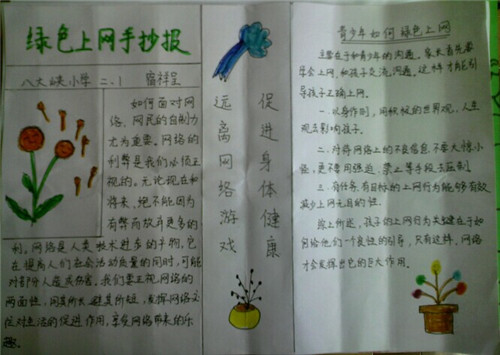 绿色上网手抄报
八大峡小学 二、1 宿祥呈
如何面对网
络，网民的自制力
尤为重要。网络的
利弊是我们必须正
视的。无论现在和
将来，绝不能因为
有弊而放弃更多的
利。网络是人类技术进步的产物，它
在提高人们生会活动质量的同时，可能
对部分人造成伤害。我们要正视网络的
两面性，用其所长，避其所短，发挥网络交
往对生活的促进作用，享受网络带来的乐
趣。
促进身体健康
远离网络游戏
青少年如何绿色上网
主要在于和青少年的沟通。家长首先要
学会上网，和孩子交流，沟通。这样才能引
导孩子正确上网。
一.以身作则，用积极的世界观，人生
观去影响孩子。
二.对待网络上的不良信息，不要大惊小
怪，更不要用强迫、禁止等手段去压制。
三.有任务，有目标的上网行为能够有效
减少上网无目的性。
综上所述，孩子的上网行为关键在于如
何给他们一个良好的引导，只有这样，网络
才会发挥出它的巨大作用。